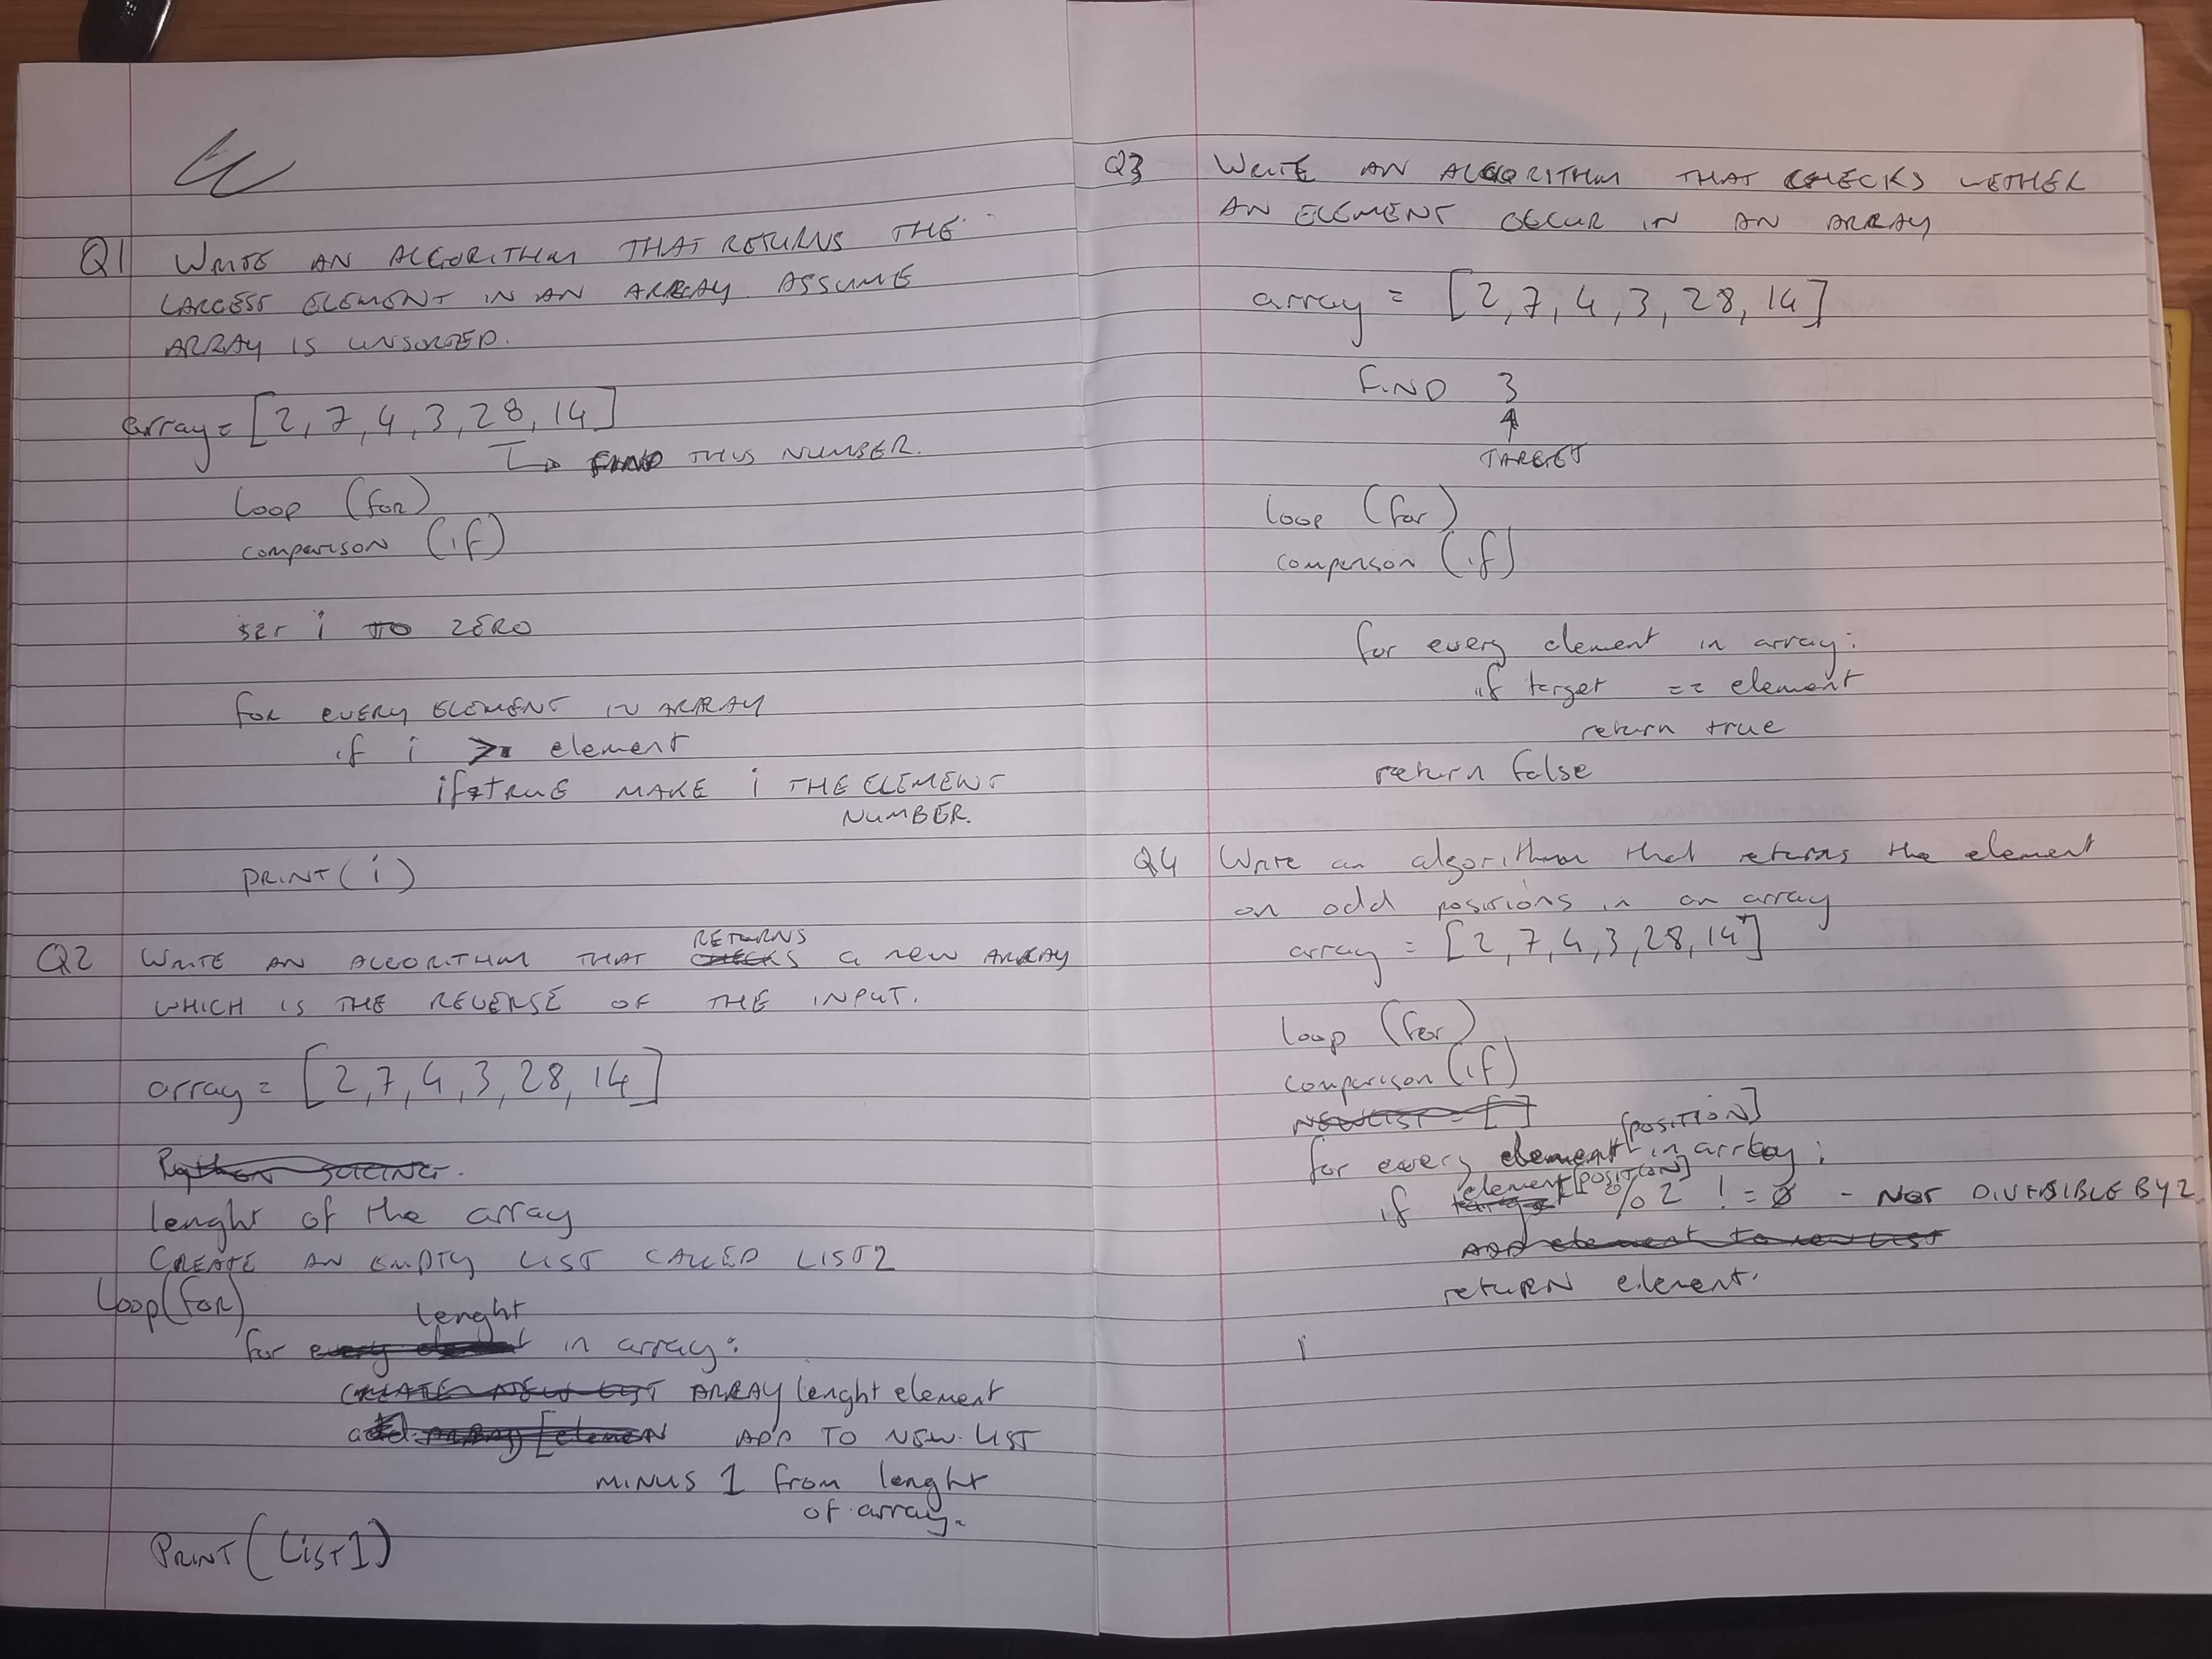 Q1 WRITE AN ALGORITHM THAT RETURNS THE
LARGEST ELEMENT IN AN ARRAY. ASSUME
ARRAY IS UNSORTED.
array = [2, 7, 4, 3, 28, 14]
FIND THIS NUMBER.
Loop (for)
comparison (if)
set i TO ZERO
for EVERY ELEMENT IN ARRAY
if i > element
if TRUE MAKE i THE ELEMENT
NUMBER.
PRINT(i)
RETURNS
Q2 WRITE AN ALGORITHM THAT CHECKS a new ARRAY
WHICH IS THE REVERSE OF THE INPUT.
array = [2, 7, 4, 3, 28, 14]
Python SLICING.
lenght of the array
CREATE AN EMPTY LIST CALLED LIST2
Loop(for)
lenght
for every element in array:
CREATE NEW LIST ARRAY lenght element
add ARRAY [element ADD TO NEW LIST
MINUS 1 from lenght
of array.
PRINT(LIST1)
Q3 WRITE AN ALGORITHM THAT CHECKS WETHER
AN ELEMENT OCCUR IN AN ARRAY
array = [2, 7, 4, 3, 28, 14]
FIND 3
TARGET
Loop (for)
comparison (if)
for every element in array:
if target == element
return true
return false
Q4 Write an algorithm that returns the element
on odd positions in an array
array = [2, 7, 4, 3, 28, 14]
loop (for)
comparison (if)
NEWLIST = []
[POSITION]
for every element in array:
element [POSITION]
if target % 2 != 0 - NOT DIVISIBLE BY 2
ADD element to new LIST
retuRN element.